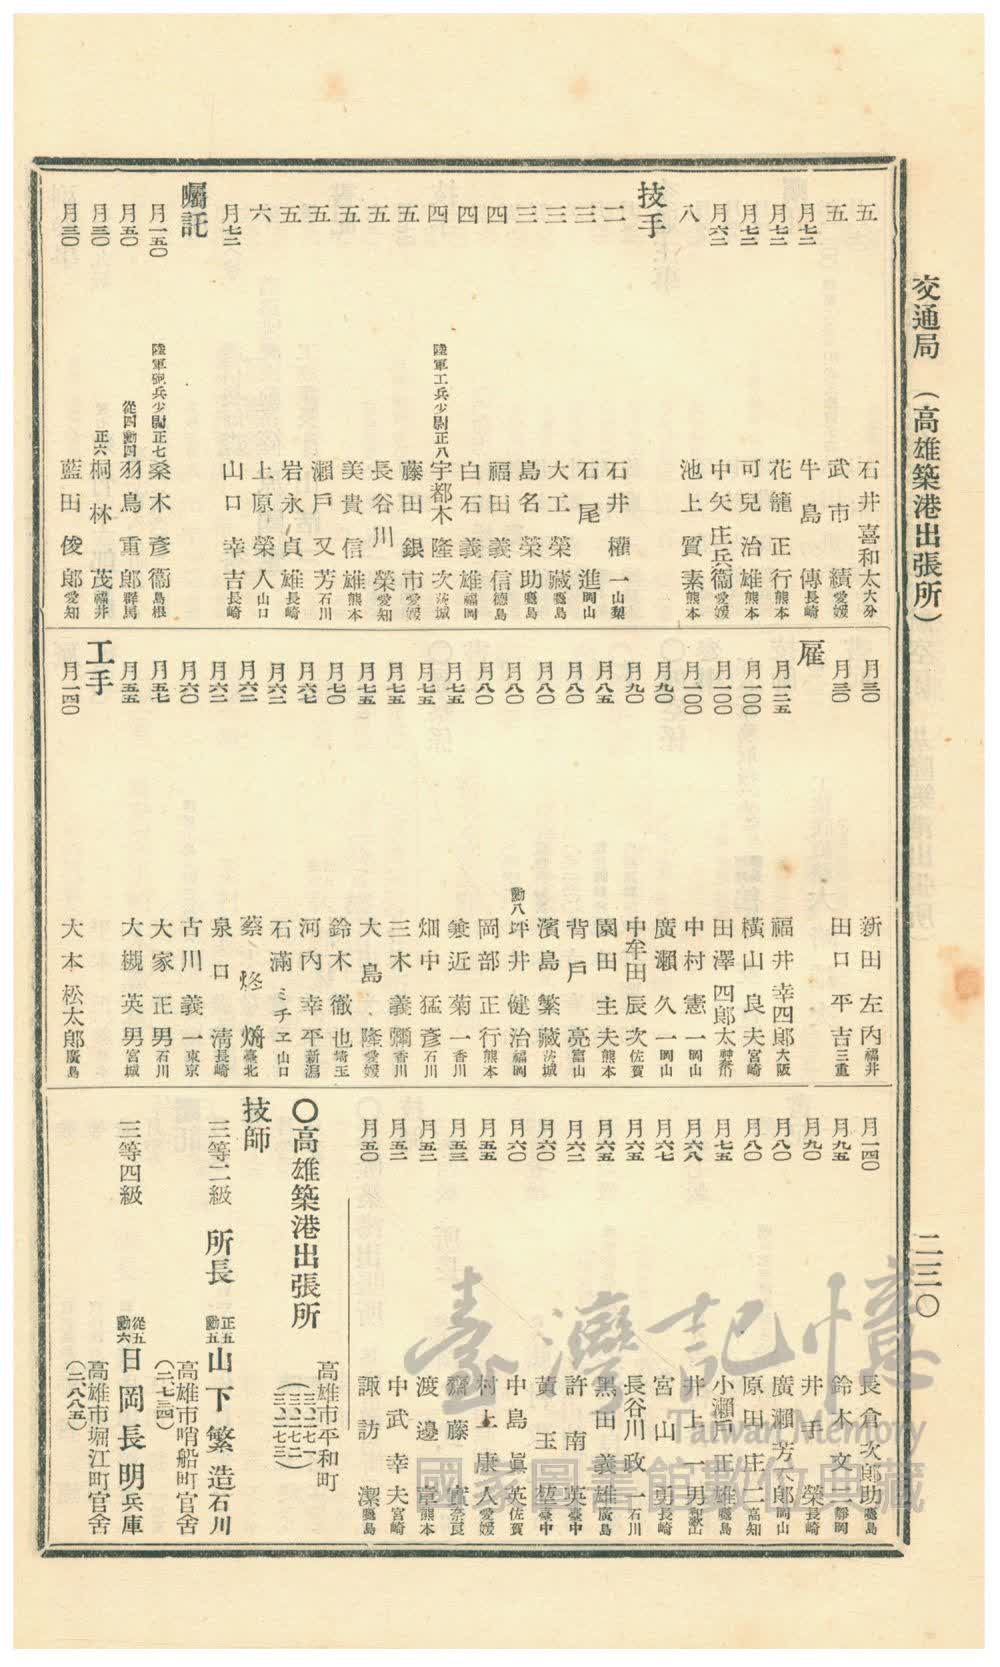 交通局 (高雄築港出張所)
二三〇
五 石井喜和太 大分
五 武市績 愛媛
月七二 牛島傳 長崎
月七二 花籠正行 熊本
月七二 可兒治雄 熊本
月六二 中矢庄兵衞 愛媛
八 池上質素 熊本
技手
二 石井權一 山梨
三 石尾進 岡山
三 大工榮藏 鹿島
三 島名榮助 鹿島
四 福田義信 德島
四 白石義雄 福岡
四 陸軍工兵少尉正八 宇都木隆次 茨城
五 藤田銀市 愛媛
五 長谷川榮 愛知
五 美貴信雄 熊本
五 瀨戶又芳 石川
五 岩永貞雄 長崎
六 上原榮人 山口
月七二 山口幸吉 長崎
囑託
月一五〇 陸軍砲兵少尉正七 桑木彥衞 島根
月五〇 從四勳四 羽鳥重郎 群馬
月三〇 正六 桐林茂 福井
月三〇 藍田俊郎 愛知
月三〇 新田左內 福井
月三〇 田口平吉 三重
雇
月一二五 福井幸四郎 大阪
月一〇〇 橫山良夫 宮崎
月一〇〇 田澤四郎太 神奈川
月一〇〇 中村憲一 岡山
月九〇 廣瀨久一 岡山
月九〇 中牟田辰次 佐賀
月八五 園田主夫 熊本
月八〇 背戶亮 富山
月八〇 濱島繁藏 茨城
月八〇 勳八 坪井健治 福岡
月八〇 岡部正行 熊本
月七五 兼近菊一 香川
月七五 畑中猛彥 石川
月七五 三木義彌 香川
月七五 大島隆 愛媛
月七〇 鈴木徹也 埼玉
月六七 河內幸平 新潟
月六二 石滿ミチヱ 山口
月六二 蔡焜 臺北
月六二 泉口淸 長崎
月六〇 古川義一 東京
月五七 大家正男 石川
月五五 大槻英男 宮城
工手
月一四〇 大本松太郎 廣島
月一四〇 長倉次郎助 鹿島
月九五 鈴木文一 靜岡
月九〇 井手榮 長崎
月八〇 廣瀨芳太郎 岡山
月八〇 原田庄二 高知
月七五 小瀨戶正雄 鹿島
月六八 井上一男 和歌山
月六七 宮山勇 長崎
月六五 長谷川政一 石川
月六五 黑田義雄 廣島
月六二 許南英 臺中
月六〇 黃玉堃 臺中
月六〇 中島眞英 佐賀
月五五 村上康人 愛媛
月五三 齋藤實 奈良
月五二 渡邊章 熊本
月五二 中武幸夫 宮崎
月五〇 諏訪潔 鹿島
〇高雄築港出張所 高雄市平和町
(三、二七一 三、二七二 三、二七三)
技師
三等二級 所長 正五勳五 山下繁造 石川
高雄市哨船町官舍
(二、七三四)
三等四級 從五勳六 日岡長明 兵庫
高雄市堀江町官舍
(二、八八五)
臺灣記憶
Taiwan Memory
國家圖書館數位典藏